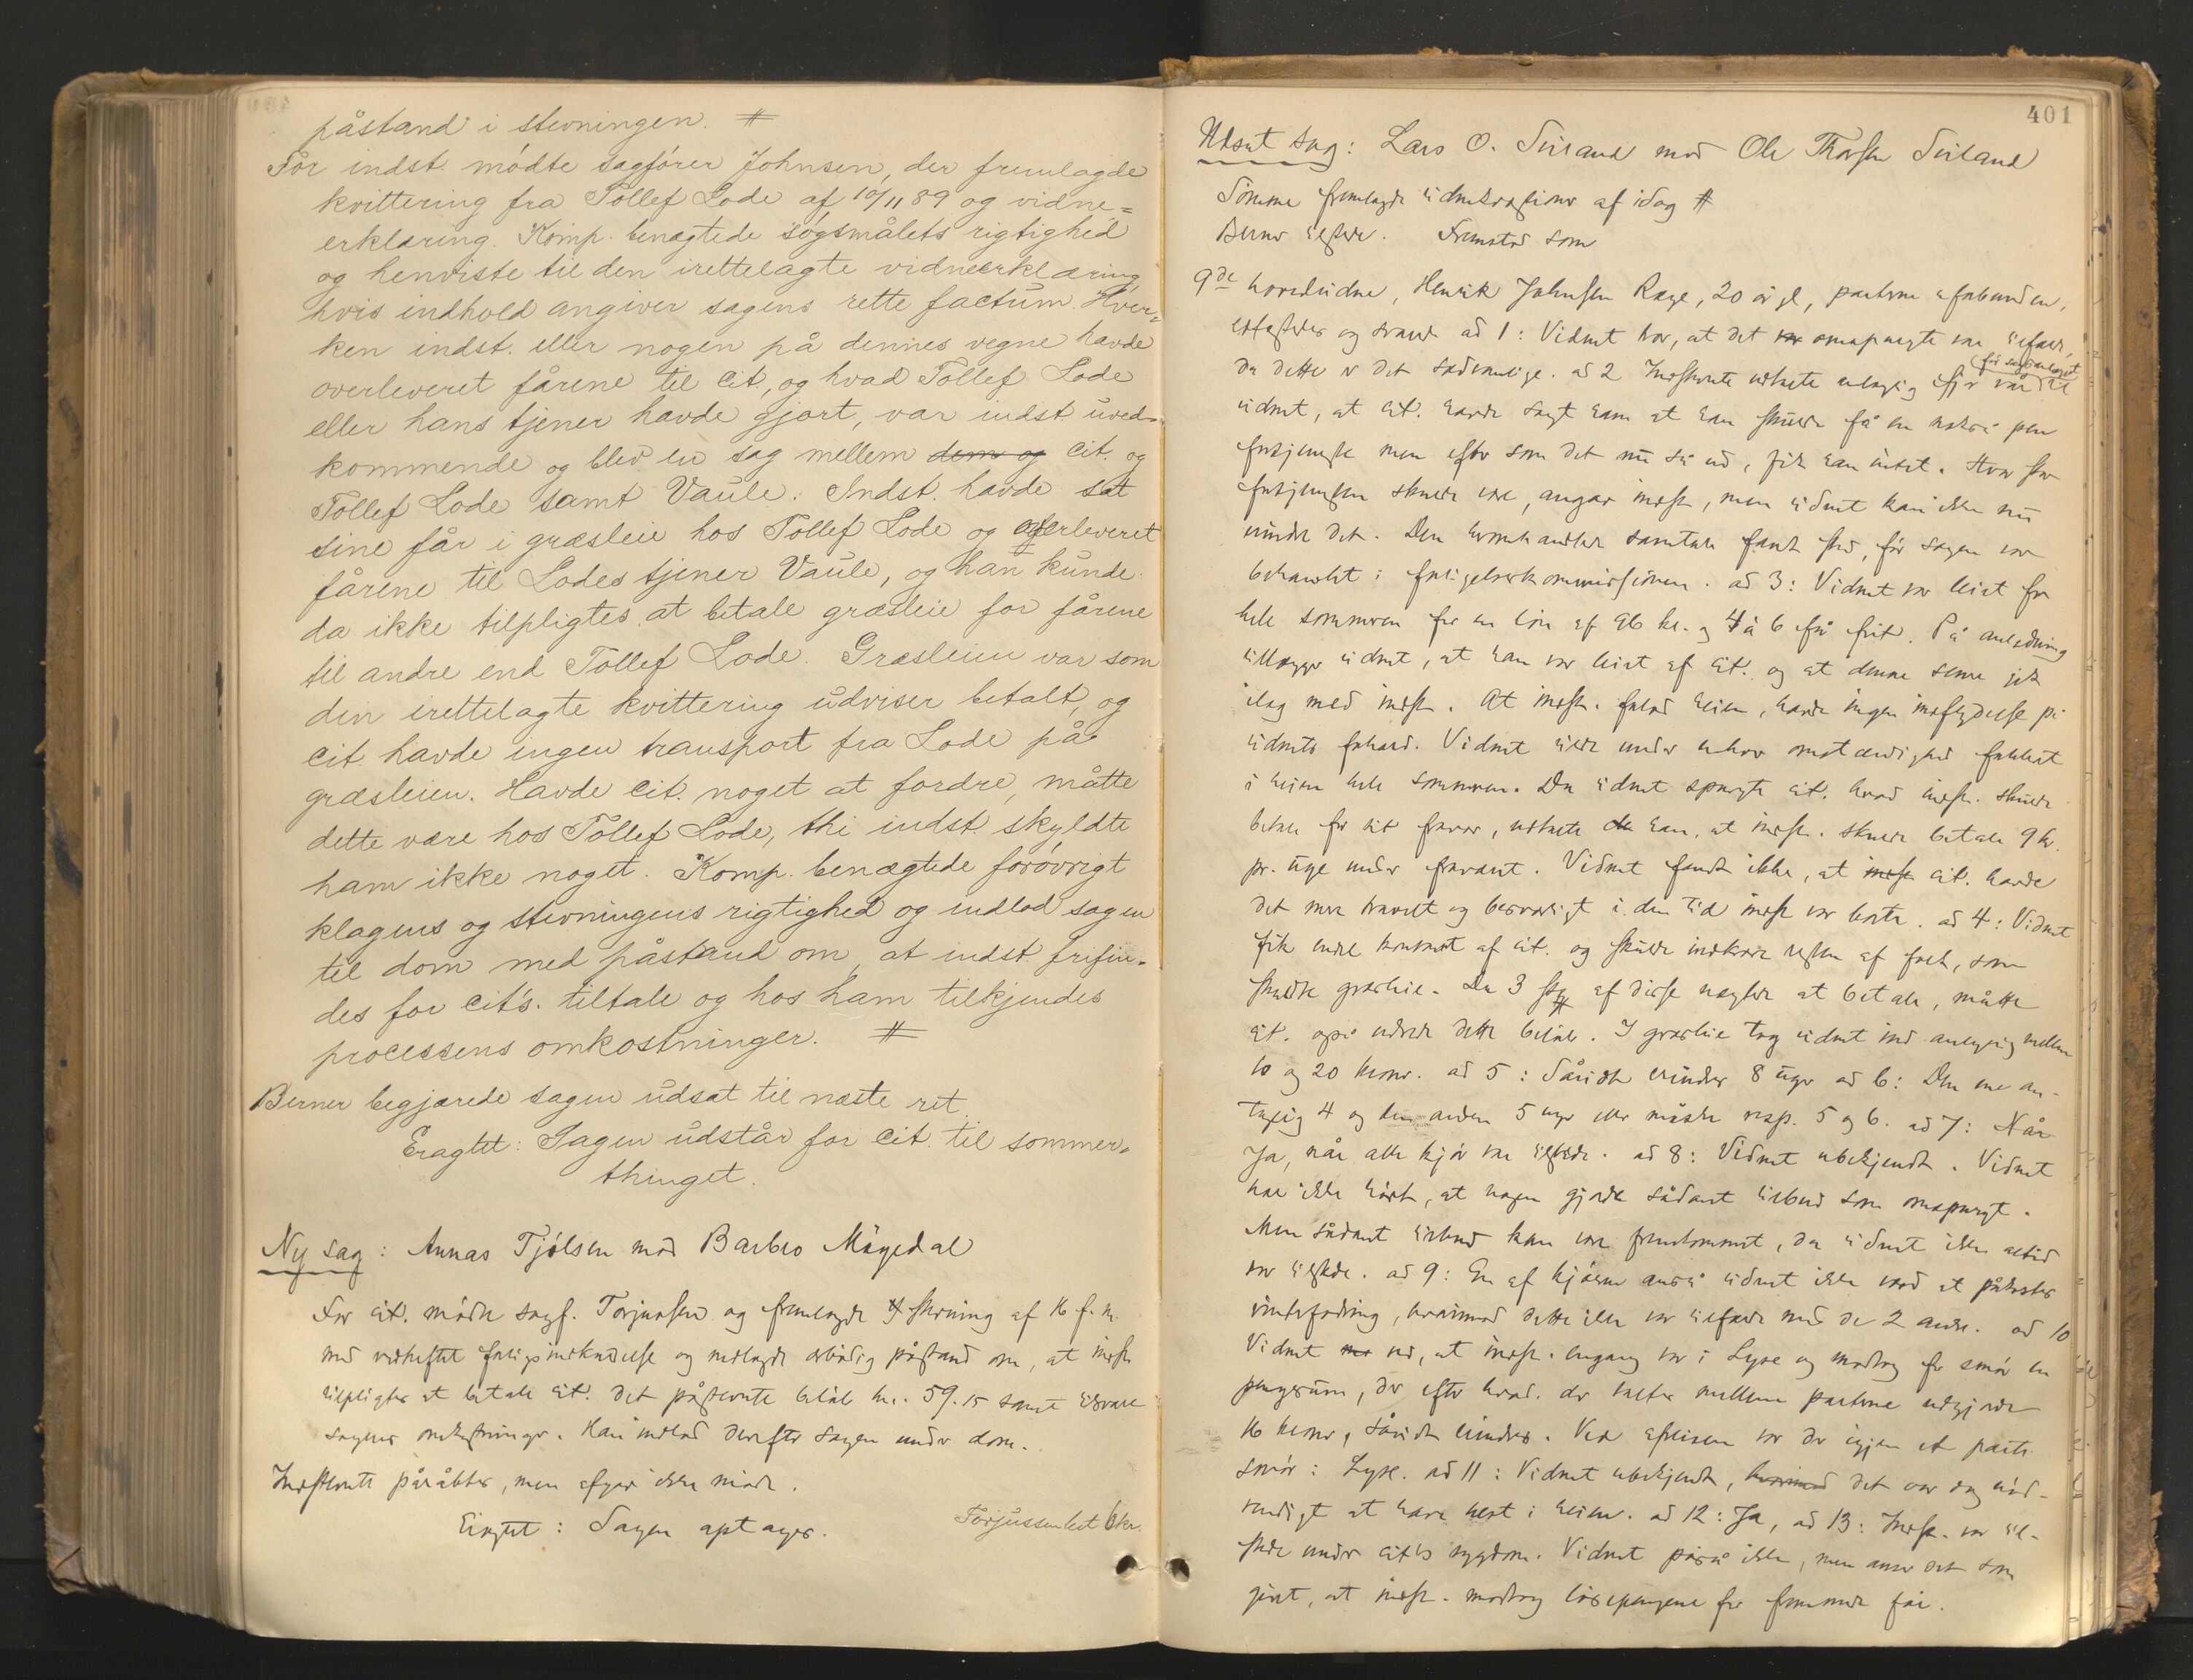 påstand i stevningen. #
For indst. mødte sagfører Johnsen, der fremlagde
kvittering fra Tollef Lode af 10/11 89 og vidne=
erklæring. Komp. benægtede søgsmålets rigtighed
og henviste til den irettelagte vidneerklæring,
hvis indhold angiver sagens rette factum. Hver=
ken indst. eller nogen på dennes vegne havde
overleveret fårene til cit., og hvad Tollef Lode
eller hans tjener havde gjort, var indst. uved=
kommende og blev en sag mellem dem og cit. og
Tollef Lode samt Vaule. Indst. havde sat
sine får i græsleie hos Tollef Lode og overleveret
fårene til Lodes tjener Vaule, og han kunde
da ikke tilpligtes at betale græsleie for fårene
til andre end Tollef Lode. Græsleien var som
den irettelagte kvittering udviser betalt, og
cit. havde ingen transport fra Lode på
græsleien. Havde cit. noget at fordre, måtte
dette være hos Tollef Lode, thi indst. skyldte
ham ikke noget. Komp. benægtede forøvrigt
klagens og stevningens rigtighed og indlod sagen
til dom med påstand om, at indst. frifin=
des for cit's. tiltale og hos ham tilkjendes
processens omkostninger. #
Berner begjærede sagen udsat til næste ret.
Eragtet: Sagen udstår for cit. til sommer=
thinget.
Ny sag: Annas Tjølsen mod Barbro Mågedal
For cit. mødte sagf. Torjussen og fremlagde # stevning af 16 f. m.
med vedheftet forligsindkaldelse og nedlagde ærbødig påstand om, at indst.
tilpligtes at betale cit. det påstevnte beløb kr. 59.15 samt tilsvare
sagens omkostninger. Han indlod derefter sagen under dom.
Indstevnte påråbtes, men afgav ikke møde.
Eragtet: Sagen optages.
Torjussen bet 6 kr.
401
Udsat sag: Lars O. Suland mod Ole Thorsen Suland
Sømme fremlagde vidneskrastioner af idag #
Berner tilstede. Fremstod som
9de hovedvidne, Henrik Johnsen Rage, 20 år gl., parterne uforbunden,
edfæstedes og svarede ad 1: Vidnet tror, at det var omspurgte var tilfældet,
da dette er det sædvanlige. ad 2 Indstevnte udtalte engang før sagsanlæget til
vidnet, at cit. havde sagt ham at han skulde få en nokså pen
fortjeneste men efter som det nu så ud, fik han intet. Hvor stor
fortjenesten skulde være, angav indst., men vidnet kan ikke nu
mindes det. Den omhandlede samtale fandt sted, før sagen var
behandlet i forligelseskommissionen. ad 3: Vidnet var leiet for
hele sommeren for en løn af 96 kr. og 4 à 6 får frit. På anledning
tillægger vidnet, at han var leiet af cit. og at denne senere gik
ilag med indst. At indst. forlod heien, havde ingen indflydelse på
vidnets forhold. Vidnet vilde under enhver omstændighed forblevet
i heien hele sommeren. Da vidnet spurgte cit. hvad indst. skulde
betale for sit fravær, udtalte han, at indst. skulde betale 9 kr.
pr. uge under fraværet. Vidnet fandt ikke, at indst. cit. havde
det mere travelt og besværligt i den tid indst. var borte. ad 4: Vidnet
fik endel kontant af cit. og skulde indkræve resten af folk, som
skyldte græsleie. Da 3 stk af disse nægtede at betale, måtte
cit. også udrede dette beløb. I græsleie tog vidnet ind antagelig mellem
10 og 20 kroner. ad 5: Såvidt erindres 8 uger ad 6: Den ene an-
tagelig 4 og den anden 5 uger eller måske resp. 5 og 6. ad 7: Når
Ja, når alle kjør var tilstede. ad 8: Vidnet ubekjendt. Vidnet
har ikke hørt, at nogen gjorde sådant tilbud som omspurgt.
Men sådant tilbud kan være fremkommet, da vidnet ikke altid
var tilstede. ad 9: En af kjørene anså vidnet ikke værd at påkostes
vinterfodring, hvorimod dette ikke var tilfældet med de 2 andre. ad 10
Vidnet ved, at indst. engang var i Lyse og modtog for smør en
pengesum, der efter hvad der taltes mellem parterne udgjorde
16 kroner, såvidt mindes. Ved afreisen var der igjen et parti
smør i Lyse. ad 11: Vidnet ubekjendt, hvorimod det var dog nød-
vendigt at have hest i heien. ad 12: Ja, ad 13: Indst. var til-
stede under cit's sygdom. Vidnet påså ikke, men anser det som
givet, at indst. modtog løsepengene for fremmede får.